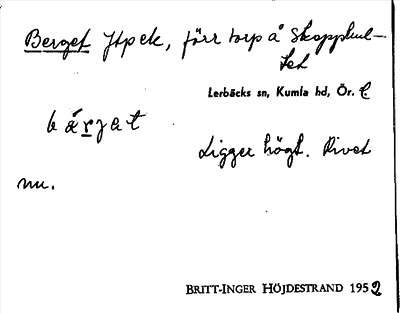 Berget Jtp etc, förr torp å Skopphul-
tet
Lerbäcks sn, Kumla hd, Ör. l.
bárjat
Ligger högt. Rivet
nu.
BRITT-INGER HÖJDESTRAND 1952